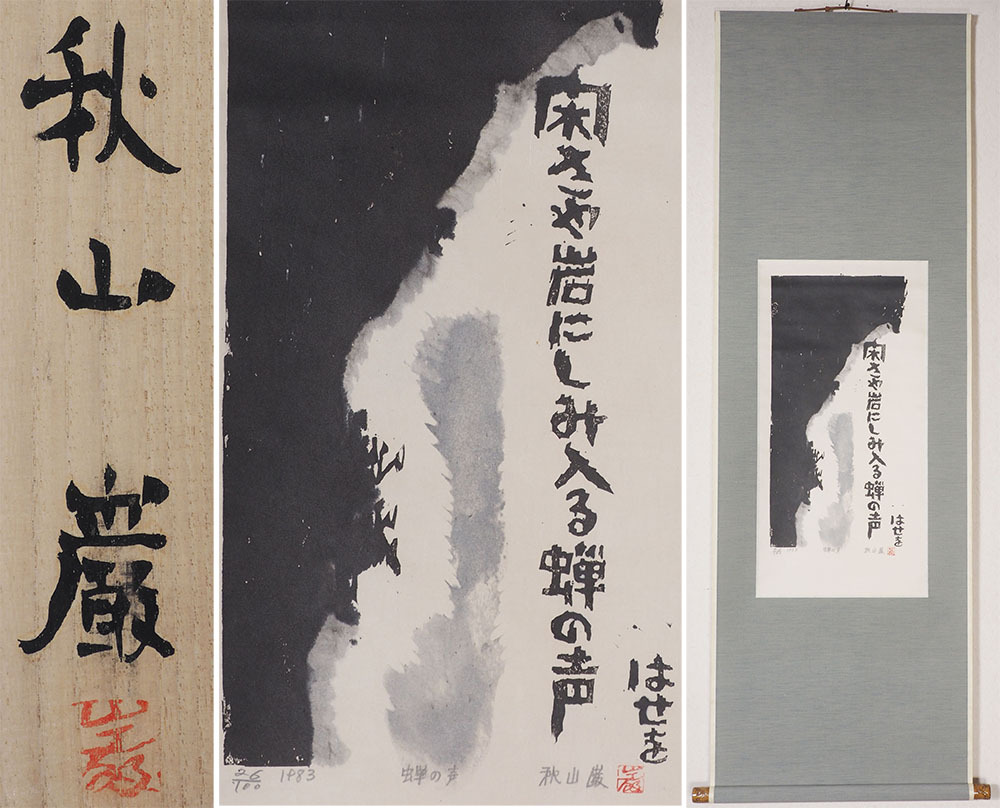 秋山巌
巌
閑さや岩にしみ入る蝉の声
はせを
26/100 1983 蝉の声 秋山巌
巌
閑さや岩にしみ入る蝉の声
はせを